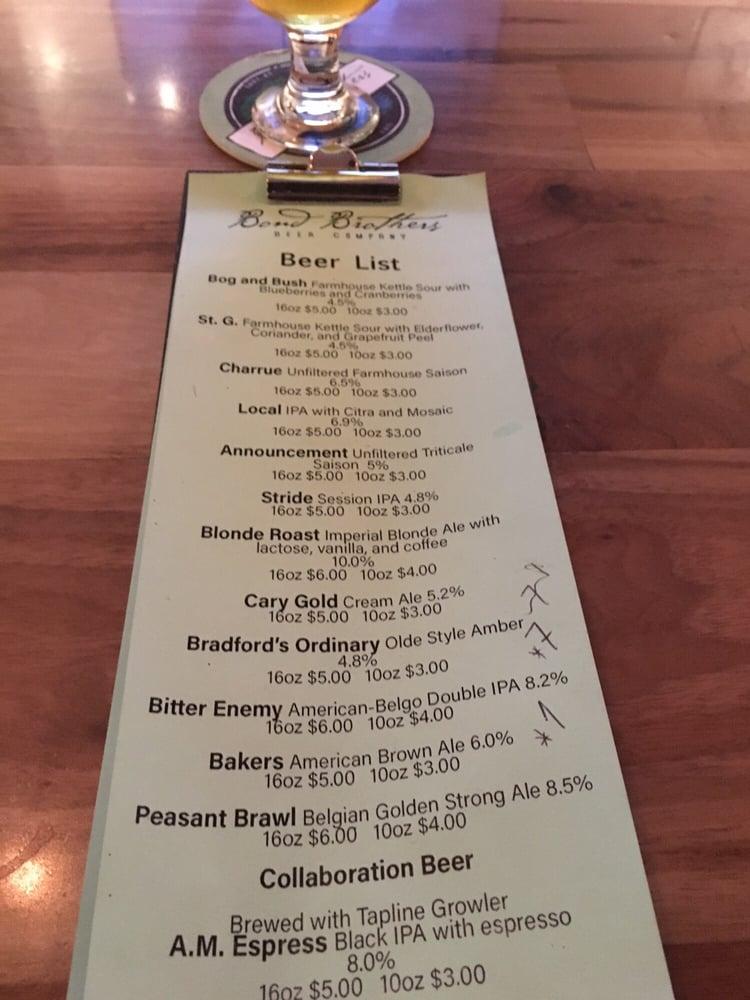 Bond Brothers
BEER COMPANY
Beer List
Bog and Bush Farmhouse Kettle Sour with
Blueberries and Cranberries
4.5%
16oz $5.00 10oz $3.00
St. G. Farmhouse Kettle Sour with Elderflower,
Coriander, and Grapefruit Peel
4.5%
16oz $5.00 10oz $3.00
Charrue Unfiltered Farmhouse Saison
6.5%
16oz $5.00 10oz $3.00
Local IPA with Citra and Mosaic
6.9%
16oz $5.00 10oz $3.00
Announcement Unfiltered Triticale
Saison 5%
16oz $5.00 10oz $3.00
Stride Session IPA 4.8%
16oz $5.00 10oz $3.00
Blonde Roast Imperial Blonde Ale with
lactose, vanilla, and coffee
10.0%
16oz $6.00 10oz $4.00
Cary Gold Cream Ale 5.2%
16oz $5.00 10oz $3.00
Bradford's Ordinary Olde Style Amber
4.8%
16oz $5.00 10oz $3.00
Bitter Enemy American-Belgo Double IPA 8.2%
16oz $6.00 10oz $4.00
Bakers American Brown Ale 6.0%
16oz $5.00 10oz $3.00
Peasant Brawl Belgian Golden Strong Ale 8.5%
16oz $6.00 10oz $4.00
Collaboration Beer
Brewed with Tapline Growler
A.M. Espress Black IPA with espresso
8.0%
16oz $5.00 10oz $3.00